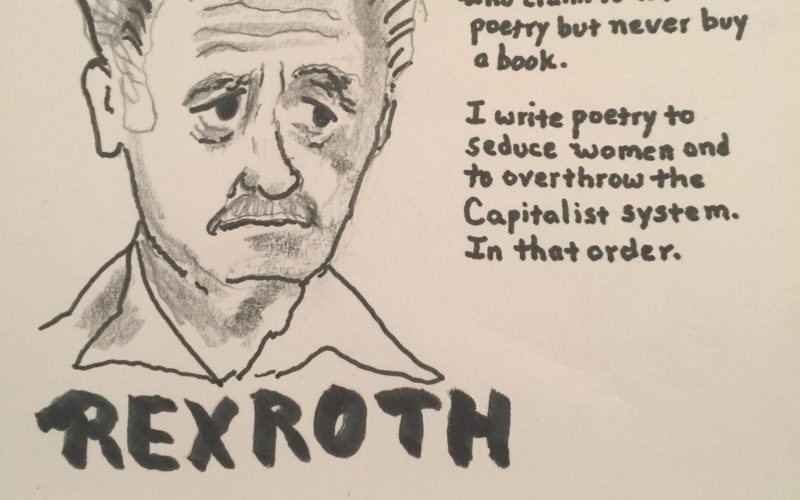 poetry but never buy
a book.
I write poetry to
seduce women and
to overthrow the
Capitalist system.
In that order.
REXROTH